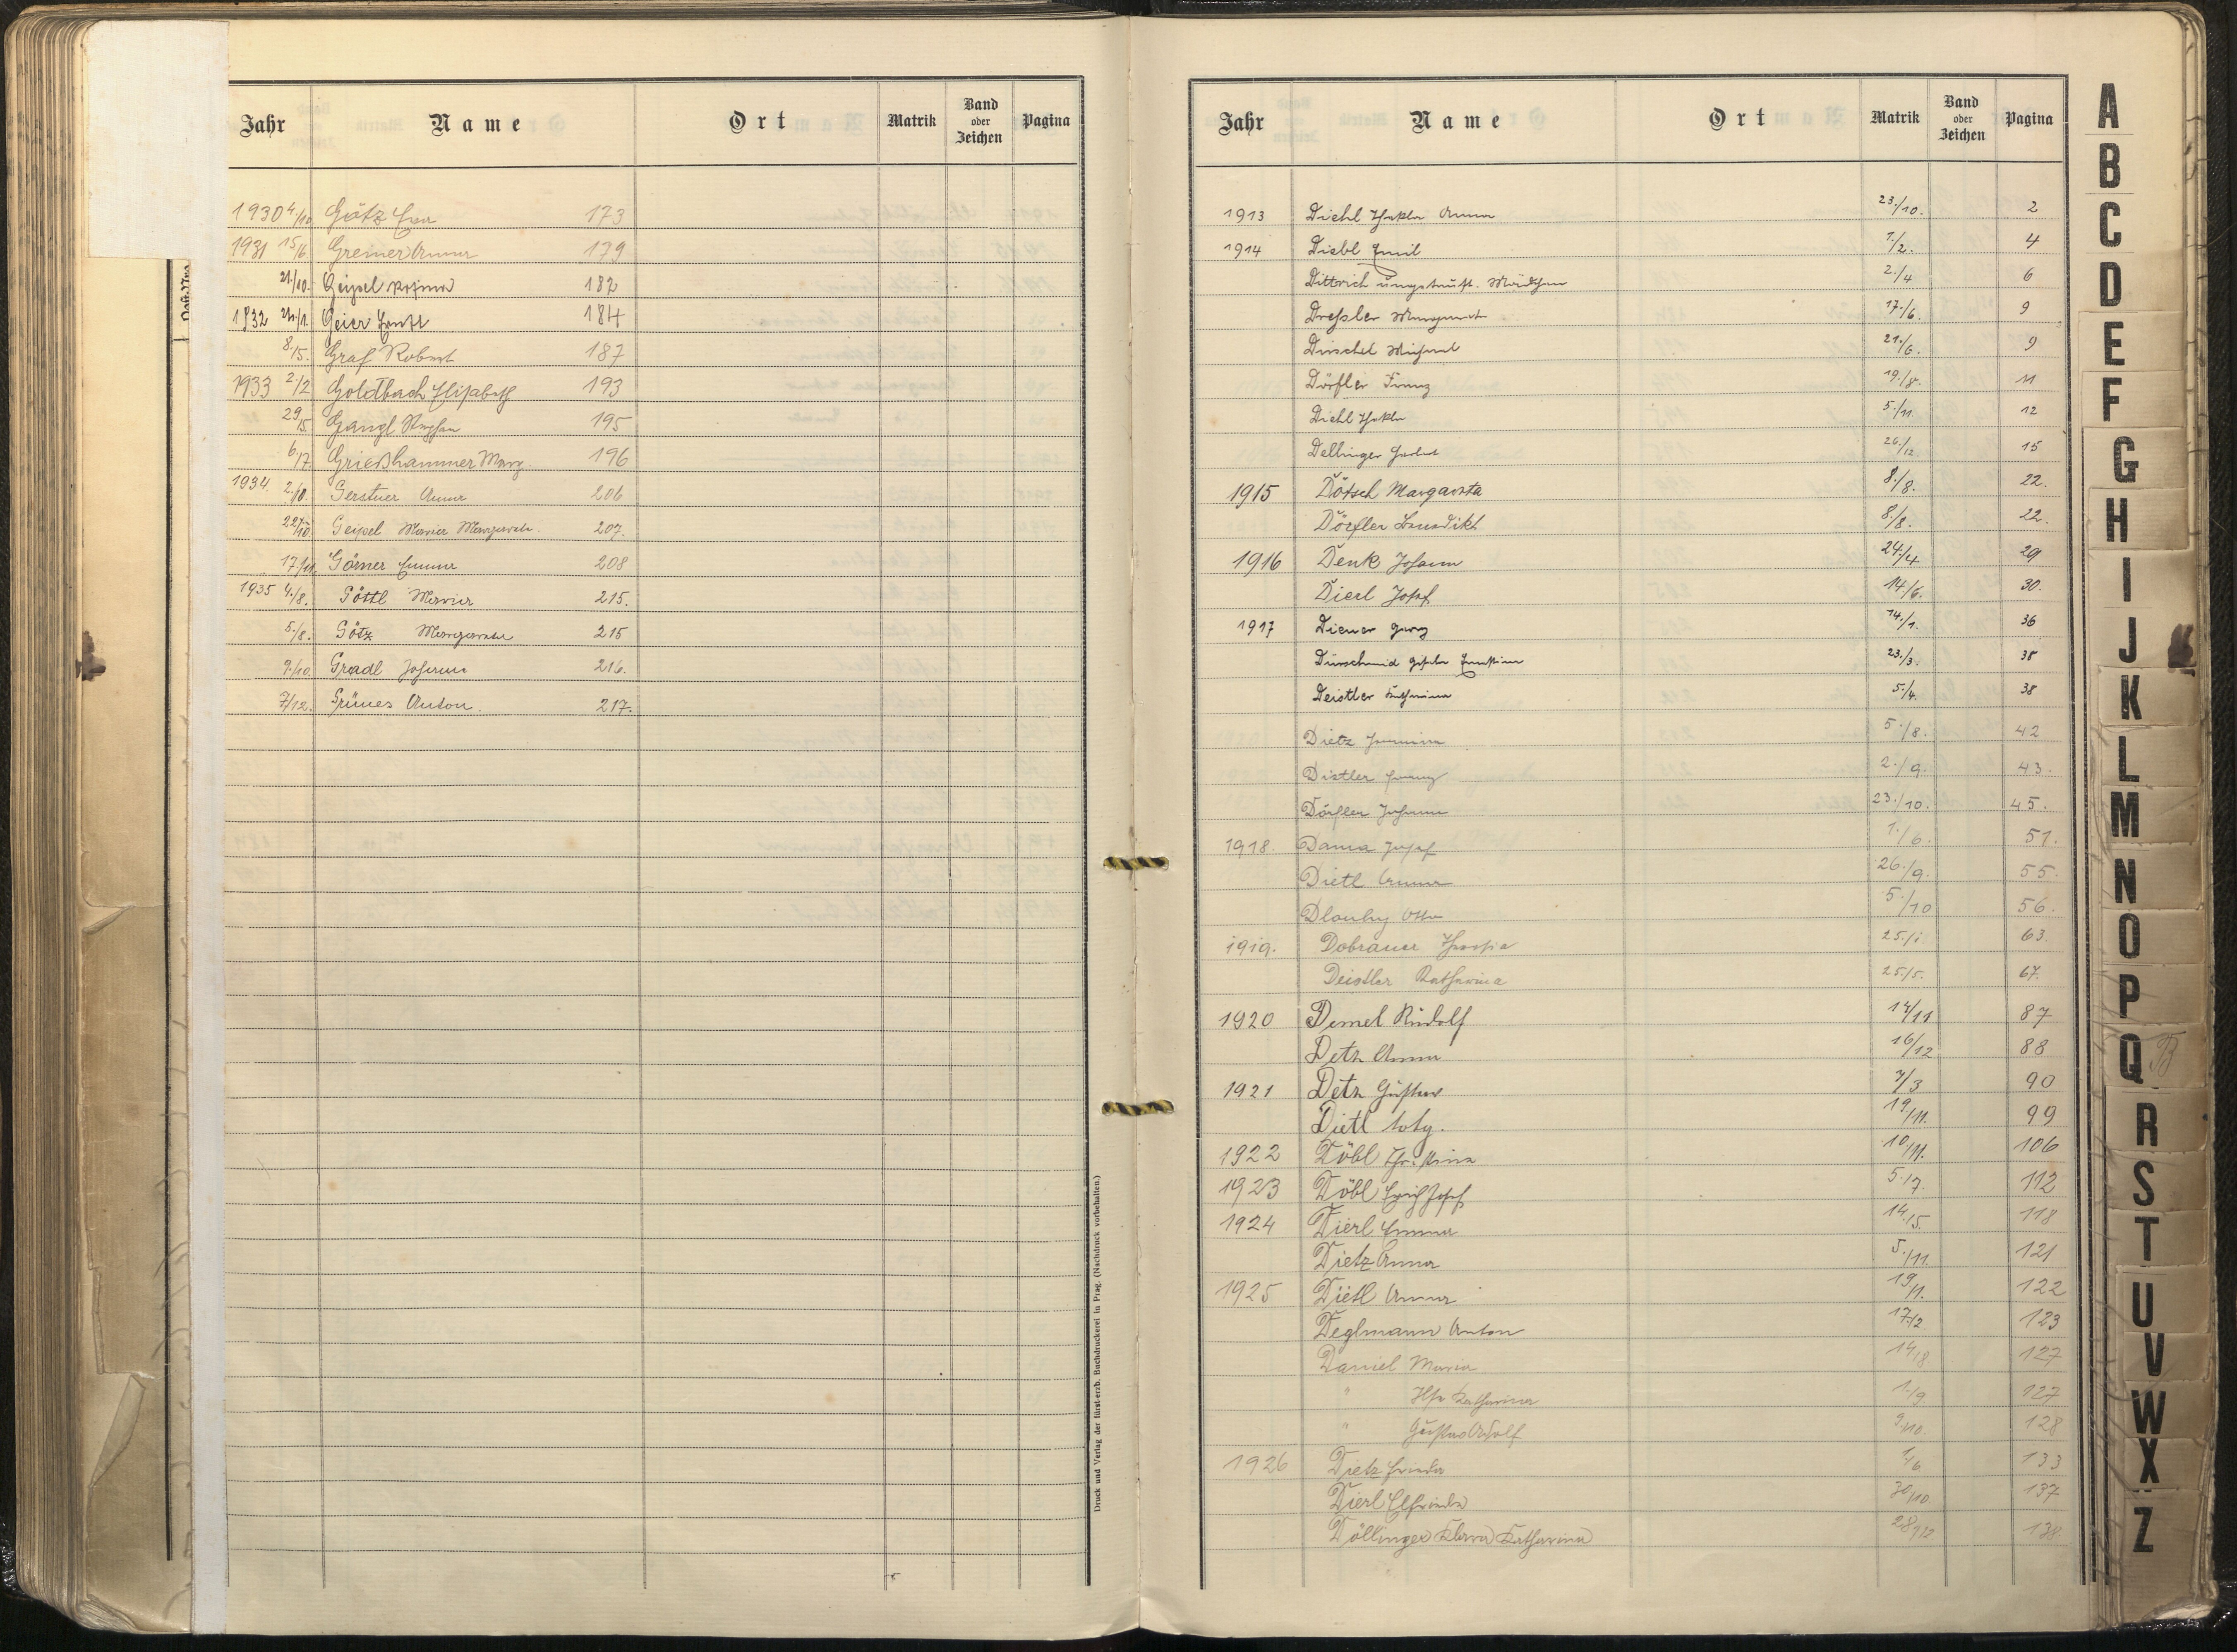 Jahr Name Ort Matrik Band oder Zeichen Pagina
1930 4./10. Götz Eva 173
1931 15/6 Greiner Anna 179
21./10. Geipel 182
1932 21./1. Geier 184
8./5. Graf Robert 187
1933 2./2 Goldbach Elisabeth 193
29/5. Gangl Stephan 195
6/7. Grießhammer Marg. 196
1934. 2./8. Gerstner Anna 206
22./10 Geipel Maria Margareta. 207.
17/11. Görner Emma 208
1935 4./8. Göttl Maria 215.
5./8. Götz Margareta 215
9./10. Gradl Johanna 216.
7/12. Grünes Anton. 217.
Druck und Verlag der fürst-erzb. Buchdruckerei in Prag. (Nachdruck vorbehalten.)
Jahr Name Ort Matrik Band oder Zeichen Pagina
1913 Diehl Thekla Anna 23./10. 2
1914 Diebl Emil 1./2. 4
Dittrich ungetauft. Mädchen 2./4 6
Dreßler Margareta 17./6. 9
Dürschel Michael 21./6. 9
Dörfler Franz 19./8. 11
Diehl Thekla 5./11. 12
Dellinger 26./12 15
1915 Dötsch Margareta 8./8. 22.
Dörfler Benedikt 8./8. 22.
1916 Denk Johann 24./4 29
Dierl Josef 14./6. 30.
1917 Diener Georg 14./1. 36
Dürschmid Ernestine 23./3. 38
Deistler Katharina 5./4. 38
Dietz 5./8. 42
Distler Franz 2./9. 43.
Dörfler Johann 23./10. 45.
1918. Dama Josef 1./6. 51.
Dietl Anna 26./9. 55.
Dlouhy Otto 5./10 56.
1919. Dobrauer 25./1 63
Deistler Katharina 25./5. 67.
1920 Demel Rudolf 14/11 87
Detz Anna 16/12 88
1921 Detz Gustav 7/3 90
Dietl totg. 19./11. 99
1922 Döbl Christina 10./11. 106
1923 Döbl Erich Josef 5./7. 112
1924 Dierl Emma 14./5. 118
Dietz Anna 5./11. 121
1925 Dietl Anna 19/1. 122
Deglmann Anton 17./2 123
Daniel Maria 14./8 127
" Ilse Katharina 1./9 127
" Gustav Adolf 9./10 128
1926 Dietz Frieda 1/6 133
Dierl Elfrieda 30/10. 137
Döllinger Klara Katharina 28/12 138.
A
B
C
D
E
F
G
H
I
J
K
L
M
N
O
P
Q
R
S
T
U
V
W
X
Z